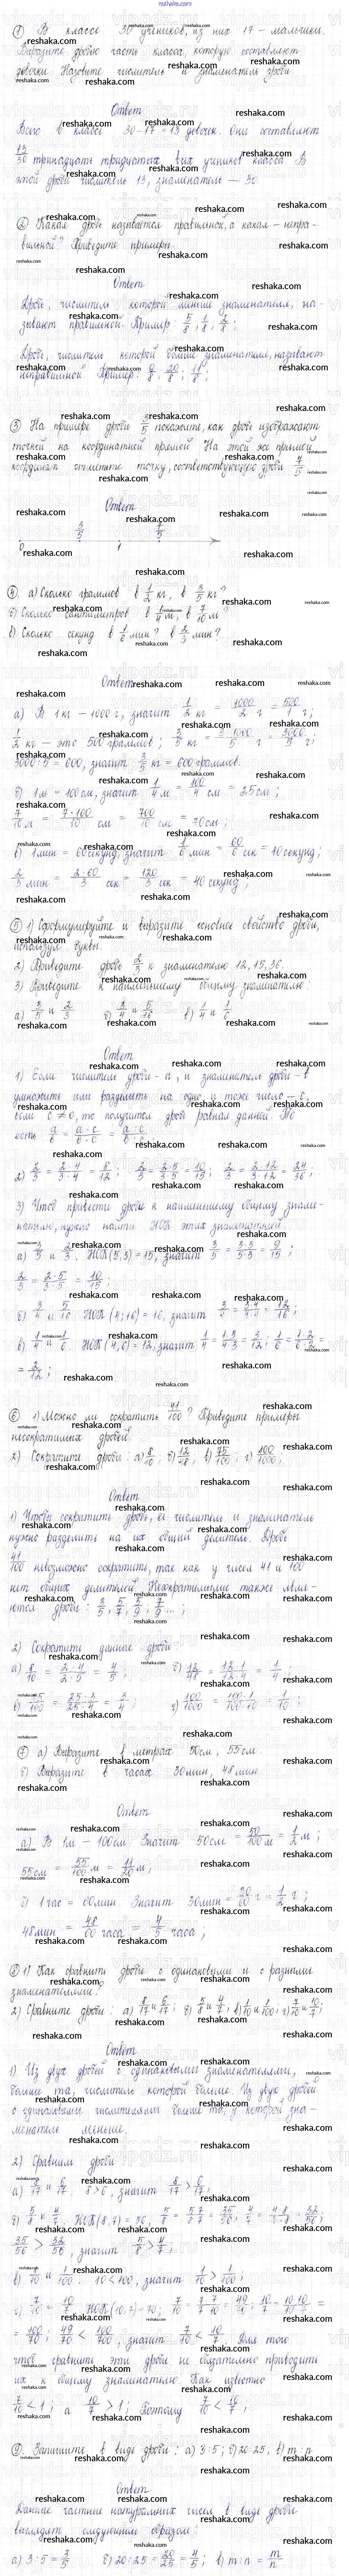 reshaka.com
1 В классе 30 учеников, из них 17 – мальчики.
Выразите дробью часть класса, которую составляют
девочки. Назовите числитель и знаменатель дроби
Ответ
Всего в классе 30-17=13 девочек. Они составляют
13/30 тринадцать тридцатых всех учеников класса. В
этой дроби числитель 13, знаменатель — 30.
2 Какая дробь называется правильной, а какая – непра-
вильной? Приведите примеры.
Ответ
Дробь, числитель которой меньше знаменателя, на-
зывают правильной. Пример: 5/8; 1/8; 2/8;
Дробь, числитель которой больше знаменателя, называют
неправильной. Пример:
3 На примере дроби 3/5 покажите, как дроби изображают
точкой на координатной прямой. На этой же прямой
координат отметьте точку, соответствующую дроби 7/5.
Ответ
3/5 7/5
0 1
4. а) Сколько граммов в 1/2 кг, в 3/5 кг?
б) Сколько сантиметров в 1/4 м, в 7/10 м?
в) Сколько секунд в 1/6 мин? в 2/3 мин?
Ответ
а) В 1 кг – 1000 г, значит 1/2 кг = 1000/2 г = 500/1 г;
1/2 кг – это 500 граммов; 3/5 кг = 3·1000/5 г = 3000/5 г;
3000:5 = 600, значит 3/5 кг = 600 граммов.
б) 1 м = 100 см, значит 1/4 м = 100/4 см = 25 см;
7/10 м = 7·100/10 см = 700/10 см = 70 см;
в) 1 мин = 60 секунд, значит 1/6 мин = 60/6 сек = 10 секунд;
2/3 мин = 2·60/3 сек = 120/3 сек = 40 секунд;
5 1) Сформулируйте и выразите основное свойство дроби,
используя буквы.
2) Приведите дробь 2/3 к знаменателю 12, 15, 36.
3) Приведите к наименьшему общему знаменателю.
а) 3/5 и 2/3 б) 3/4 и 5/16 в) 1/4 и 1/6
Ответ
1) Если числитель дроби – a, и знаменатель дроби – b
умножить или разделить на одно и тоже число – c,
если c ≠ 0, то получится дробь равная данной. То
есть a/b = a·c/b·c = a:c/b:c;
2) 2/3 = 2·4/3·4 = 8/12; 2/3 = 2·5/3·5 = 10/15; 2/3 = 2·12/3·12 = 24/36;
3) Чтоб привести дробь к наименьшему общему знаме-
нателю, нужно найти НОК этих знаменателей.
а) 3/5 и 2/3. НОК(5,3) = 15, значит 3/5 = 3·3/5·3 = 9/15;
2/3 = 2·5/3·5 = 10/15;
б) 3/4 и 5/16 НОК(4;16) = 16, значит 3/4 = 3·4/4·4 = 12/16;
в) 1/4 и 1/6. НОК(4,6) = 12, значит 1/4 = 1·3/4·3 = 3/12; 1/6 = 1·2/6·2 =
= 2/12;
6 1) Можно ли сократить 41/100? Приведите примеры
несократимых дробей.
2) Сократите дроби: а) 8/10; б) 12/48; в) 75/100; г) 100/1000;
Ответ
1) Чтобы сократить дробь, её числитель и знаменатель
нужно разделить на их общий делитель. Дробь
41/100 невозможно сократить, так как у чисел 41 и 100
нет общих делителей. Несократимыми также явля-
ются дроби: 3/5; 5/7; 5/9; 7/9 ... ;
2) Сократите данные дроби
а) 8/10 = 2·4/2·5 = 4/5; б) 12/48 = 12·1/12·4 = 1/4;
в) 75/100 = 25·3/25·4 = 3/4; г) 100/1000 = 100·1/100·10 = 1/10;
7 а) Выразите в метрах 50 см, 55 см.
б) Выразите в часах 30 мин, 48 мин
Ответ
а) В 1 м – 100 см. Значит 50 см = 50/100 м = 1/2 м;
55 см = 55/100 м = 11/20 м;
б) 1 час = 60 мин. Значит 30 мин = 30/60 ч = 1/2 ч;
48 мин = 48/60 часа = 4/5 часа;
8 1) Как сравнить дроби с одинаковыми и с разными
знаменателями.
2) Сравните дроби: а) 8/17 и 6/17; б) 5/8 и 4/7; в) 1/10 и 1/100; г) 7/10 и 10/7;
Ответ
1) Из двух дробей с одинаковыми знаменателями,
больше та, числитель которой больше. Из двух дробей
с одинаковыми числителями больше та, у которой зна-
менатель меньше.
2) Сравним дроби
а) 8/17 и 6/17. 8>6, значит 8/17 > 6/17;
б) 5/8 и 4/7. НОК(8,7) = 56; 5/8 = 5·7/8·7 = 35/56; 4/7 = 4·8/7·8 = 32/56;
35/56 > 32/56, значит 5/8 > 4/7;
в) 1/10 и 1/100. 10<100, значит 1/10 > 1/100;
г) 7/10 и 10/7. НОК(10,7) = 70; 7/10 = 7·7/7·10 = 49/70; 10/7 = 10·10/7·10 =
= 100/70; 49/70 < 100/70, значит 7/10 < 10/7. Для того
чтоб сравнить эти дроби не обязательно приводить
их к общему знаменателю. Как известно
7/10 < 1, а 10/7 > 1; Поэтому 7/10 < 10/7;
9. Запишите в виде дроби: а) 3:5; б) 20:25; в) m:n
Ответ
Данные частные натуральных чисел в виде дроби
выглядят следующим образом:
а) 3:5 = 3/5 б) 20:25 = 20/25 = 4/5; в) m:n = m/n